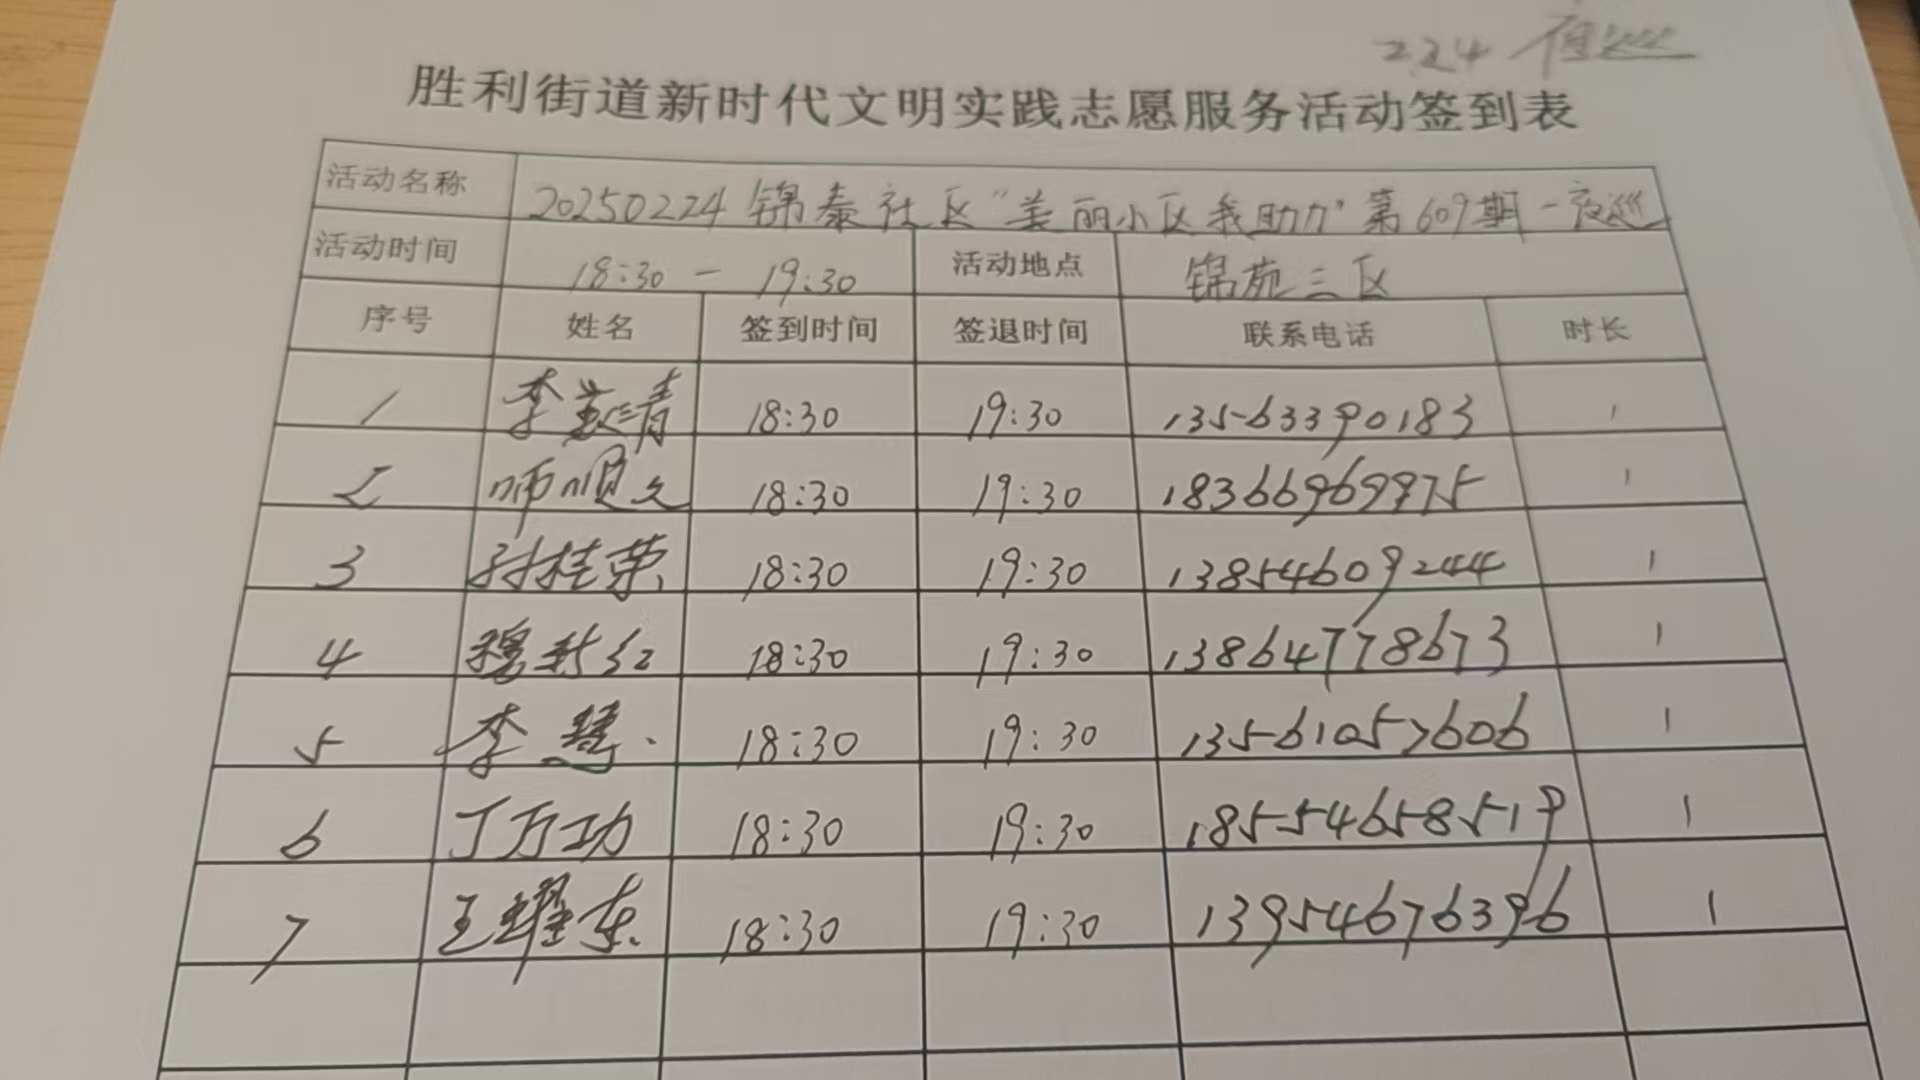 2.24 夜巡
胜利街道新时代文明实践志愿服务活动签到表
活动名称 20250224锦泰社区“美丽小区我助力”第609期-夜巡
活动时间 18:30 - 19:30 活动地点 锦苑三区
序号 姓名 签到时间 签退时间 联系电话 时长
1 李 清 18:30 19:30 13563390183 1
2 师顺文 18:30 19:30 18366969975 1
3 孙桂荣 18:30 19:30 13854609244 1
4 穆新红 18:30 19:30 13864778673 1
5 李慧 18:30 19:30 13561057606 1
6 丁万功 18:30 19:30 18554658519 1
7 王耀东 18:30 19:30 13954676396 1